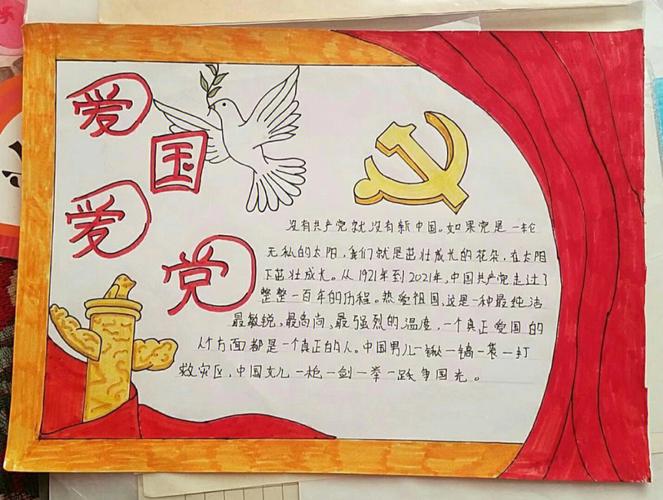 爱
国
爱
党
没有共产党就没有新中国。如果党是一轮
无私的太阳，我们就是茁壮成长的花朵，在太阳
下茁壮成长。从1921年到2021年，中国共产党走过了
整整一百年的历程。热爱祖国，这是一种最纯洁
最敏锐、最高尚、最强烈的温度，一个真正爱国的
人个方面都是一个真正的人。中国男儿一锹一镐一袋一打
救灾区，中国女儿一枪一剑一拳一跃争国光。